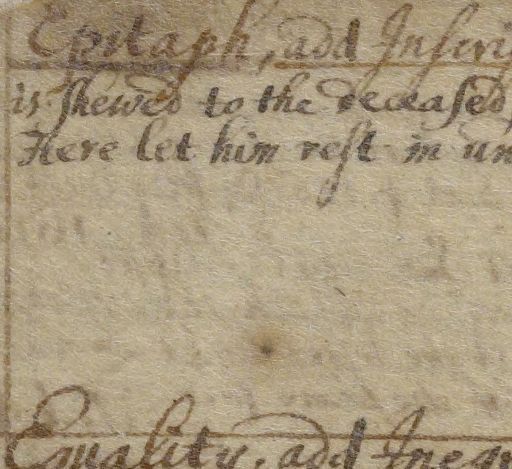 Epitaph, add Inscri
is shewed to the deceased,
Here let him rest in un
Equality, add Inequ